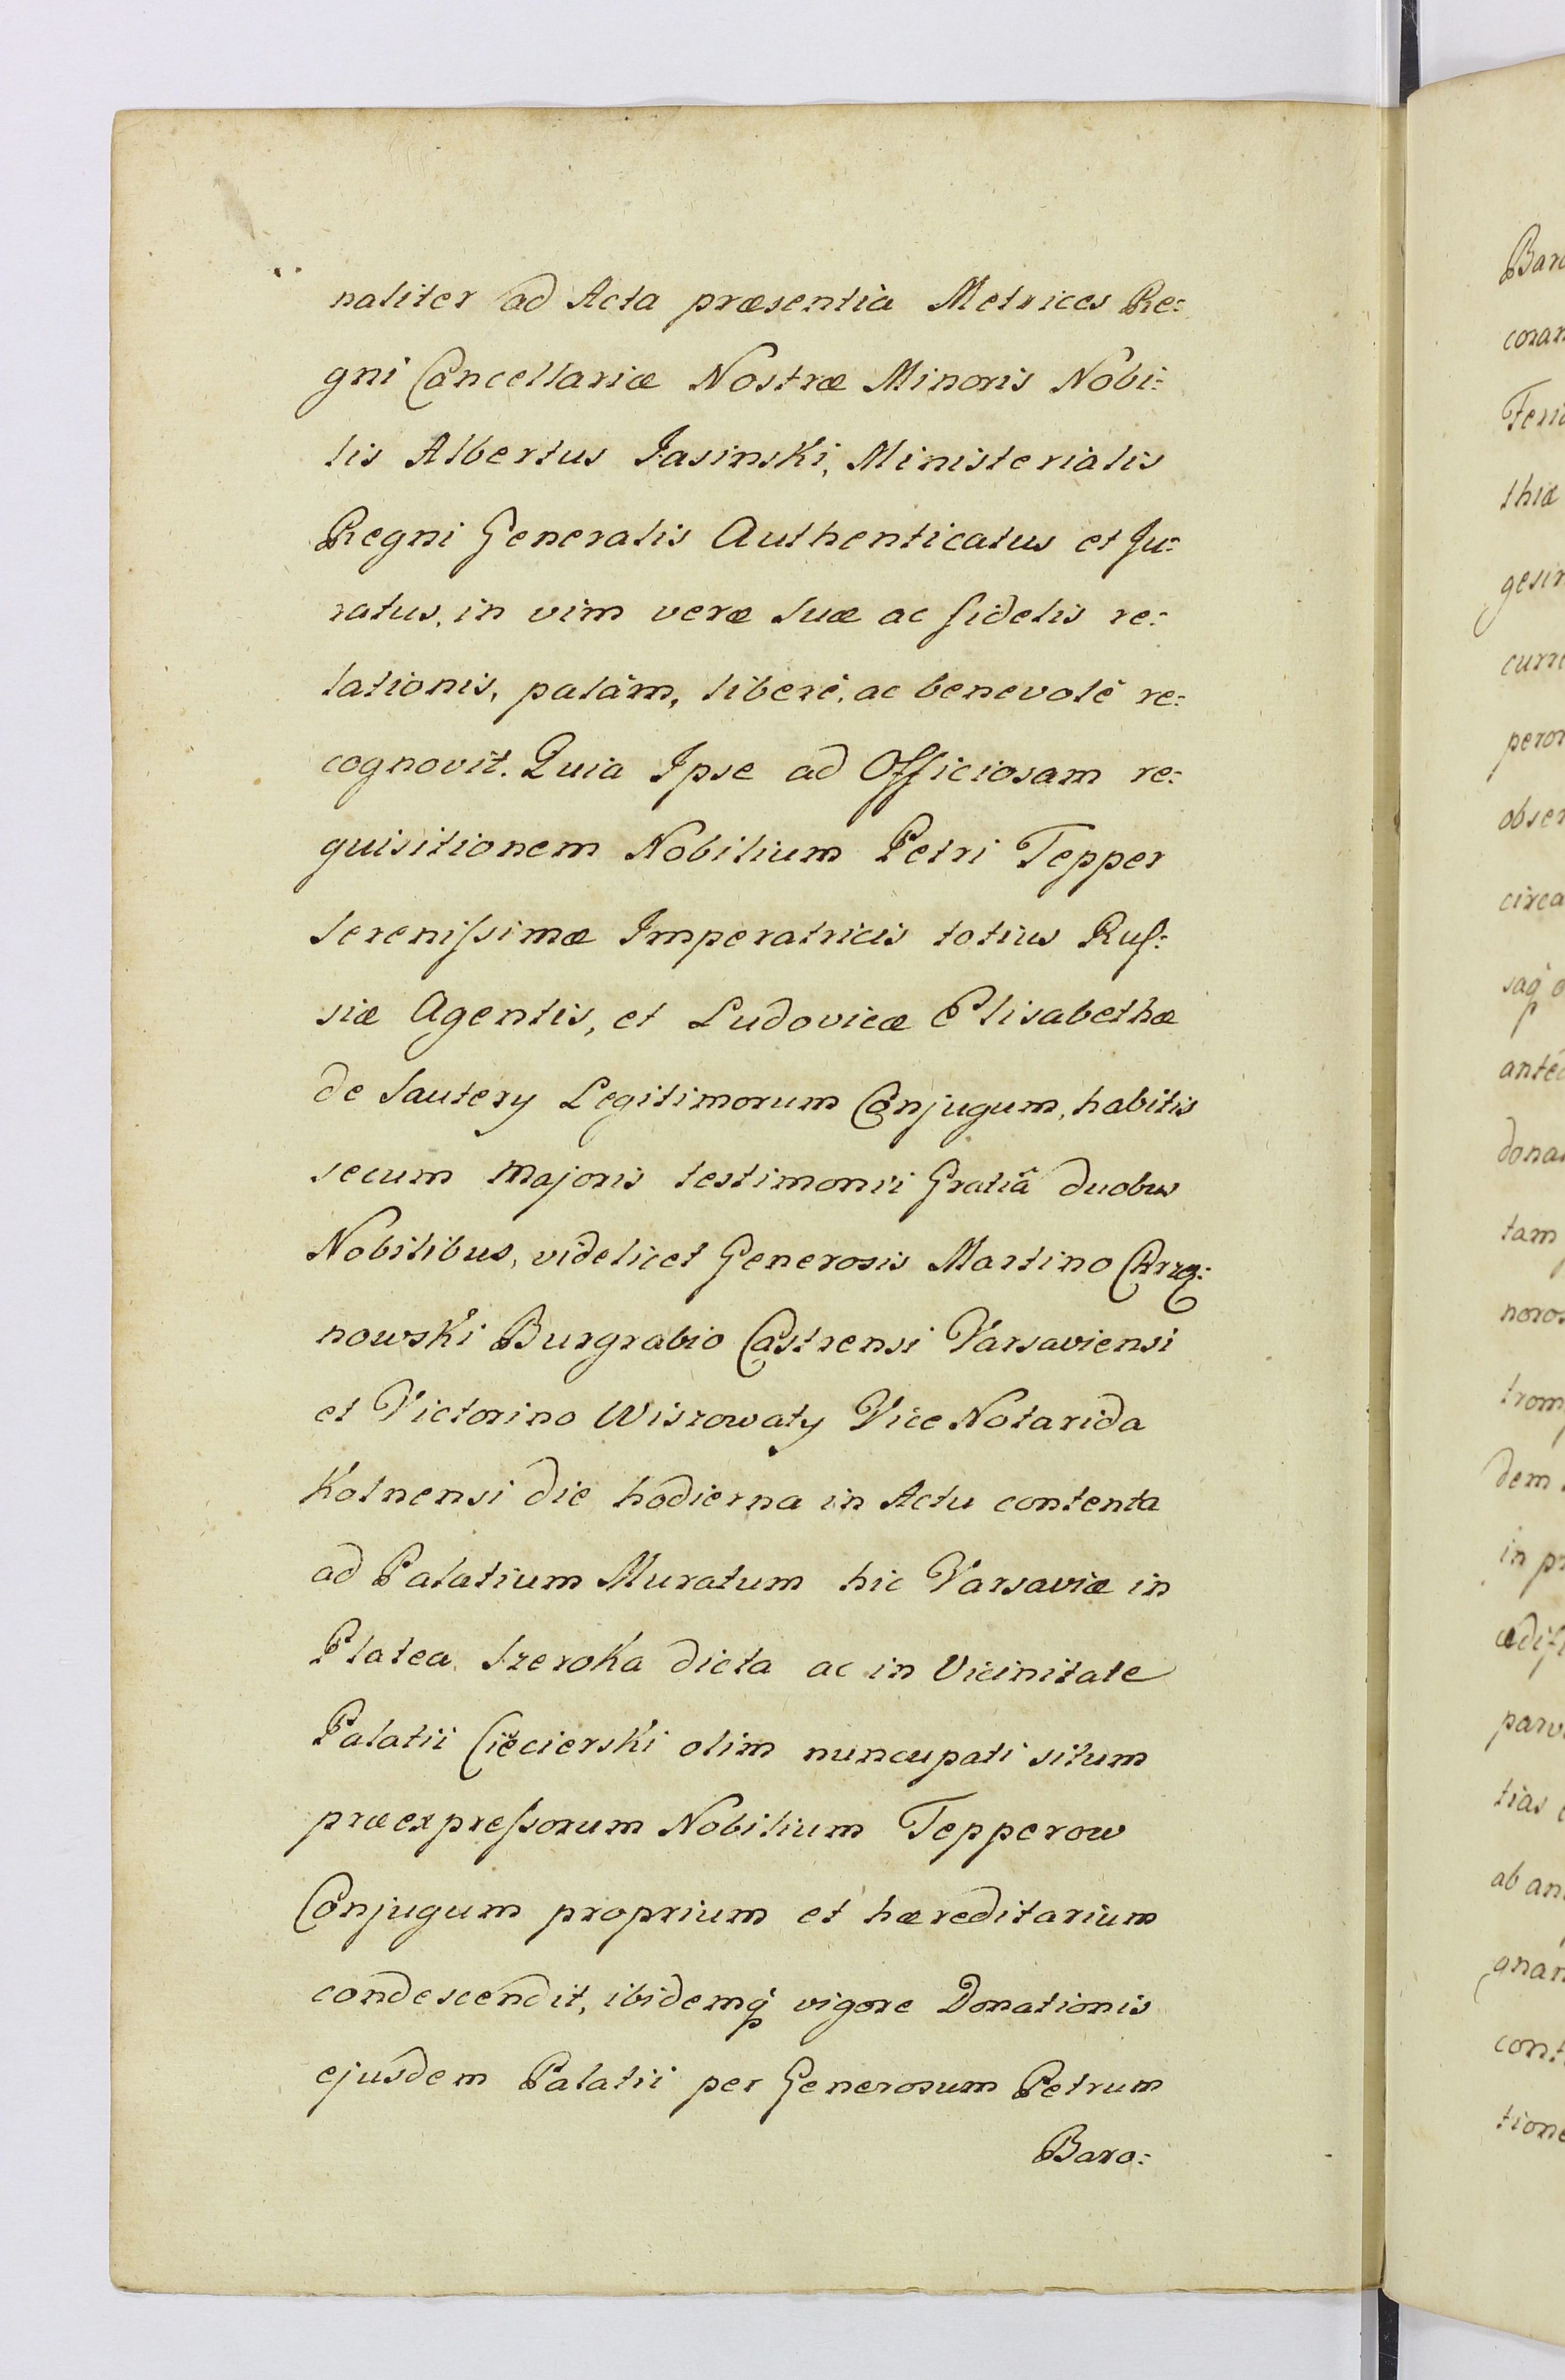 naliter ad Acta præsentia Metrices Re:
gni Cancellariæ Nostræ Minoris Nobi:
lis Albertus Jasinski, Ministerialis
Regni Generalis Authenticatus et Ju:
ratus, in vim veræ suæ ac fidelis re:
lationis, palàm, liberè, ac benevolè re:
cognovit. Quia Ipse ad Officiosam re:
quisitionem Nobilium Petri Tepper
Serenißimæ Imperatricis totius Ruſ:
siæ Agentis, et Ludovicæ Elisabethæ
de Sautery Legitimorum Conjugum, habitis
secum Majoris testimonii Gratiâ duobus
Nobilibus, videlicet Generosis Martino
nowski Burgrabio Castrensi Varsaviensi
et Victorino Wiszowaty Vice Notarida
Kolnensi die hodierna in Actu contenta
ad Palatium Muratum hic Varsaviæ in
Platea Szeroka dicta ac in Vicinitate
Palatii Ciecierski olim nuncupati situm
præexpreßorum Nobilium Tepperow
Conjugum proprium et hæreditarium
condescendit, ibidemq vigore Donationis
ejusdem Palatii per Generosum Petrum
Baro:
coram
thiæ
circa
tam
dem